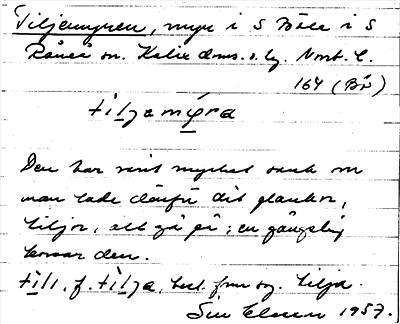 Tiljamyren, myr i S Böle i S
Råneå sn. Kalix dms. o. lg. Nbt. l.
164 (Bö)
tiljamýra
Den har varit mycket sank en
man lade därför dit plankor,
tiljor, att gå på; en gångstig
korsar den.
tili, f. tilja, best. form sg. tilja.
Siv Elsen 1957.